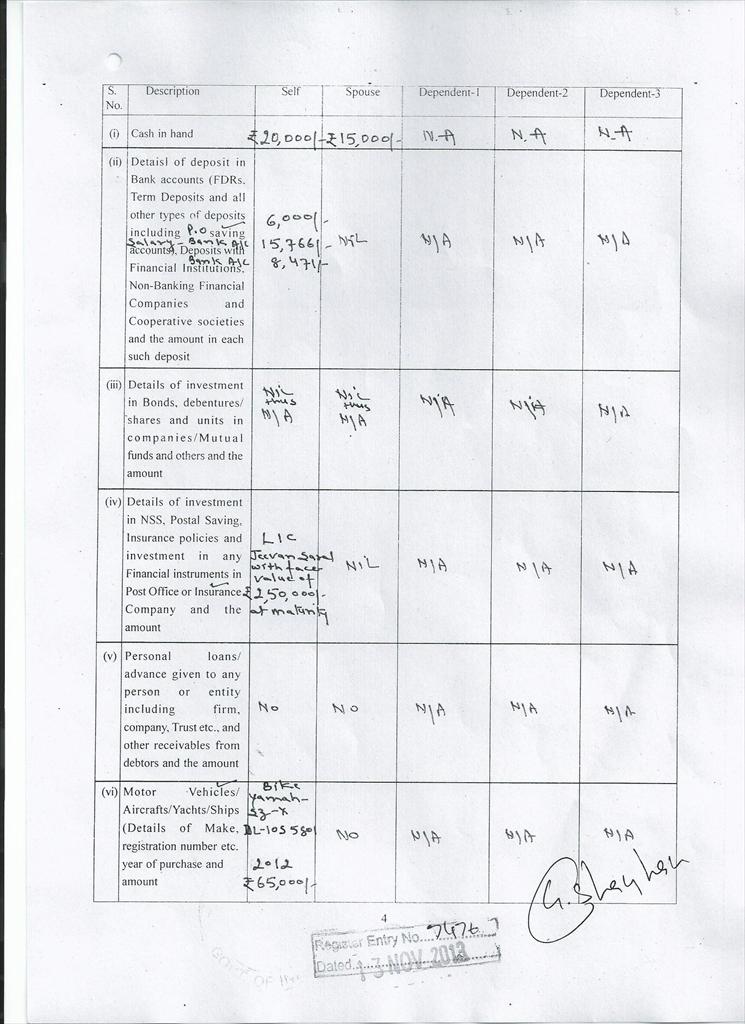 S. No. Description Self Spouse Dependent-1 Dependent-2 Dependent-3
(i) Cash in hand ₹20,000/- ₹15,000/- N.A N.A N.A
(ii) Detaisl of deposit in
Bank accounts (FDRs.
Term Deposits and all
other types of deposits 6,000/-
including P.O saving
Salary - Bank A/c 15,766/- NiL N/A N/A N/A
accounts), Deposits with
Bank A/c 8,471/-
Financial Institutions,
Non-Banking Financial
Companies and
Cooperative societies
and the amount in each
such deposit
(iii) Details of investment NiL NiL
in Bonds, debentures/ thus thus N/A N/A N/A
shares and units in N/A N/A
companies/Mutual
funds and others and the
amount
(iv) Details of investment
in NSS, Postal Saving,
Insurance policies and LIC
investment in any Jeevan Saral
Financial instruments in with face NiL N/A N/A N/A
Post Office or Insurance value of
₹2,50,000/-
Company and the at maturity
amount
(v) Personal loans/
advance given to any
person or entity
including firm, No No N/A N/A N/A
company, Trust etc., and
other receivables from
debtors and the amount
(vi) Motor Vehicles/ Bike
Aircrafts/Yachts/Ships Yamah- SZ-X
(Details of Make, DL-10S 5801 No N/A N/A N/A
registration number etc.
year of purchase and 2012
amount ₹65,000/-
4
Register Entry No. 7476
Dated 13 NOV 2013